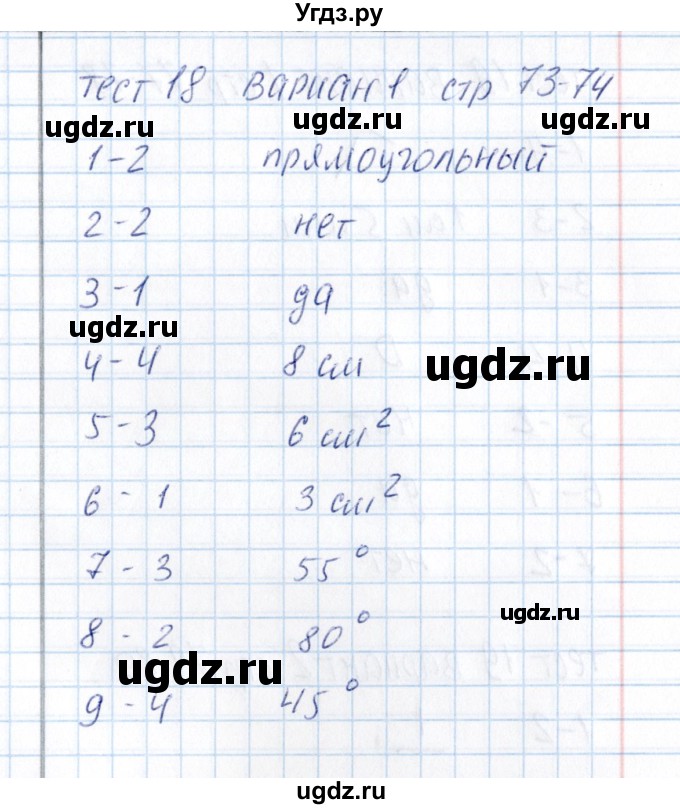 Угдз.ру
тест 18 вариан 1 стр 73-74
ugdz.ru ugdz.ru ugdz.ru
1-2 прямоугольный
2-2 нет
3-1 да
ugdz.ru
4-4 8 см
ugdz.ru
5-3 6 см²
6-1 3 см²
7-3 55°
ugdz.ru
8-2 80°
ugdz.ru
9-4 45°
ugdz.ru